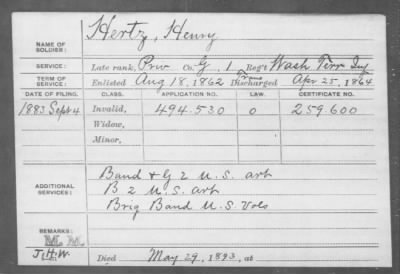 NAME OF SOLDIER: Hertz, Henry
SERVICE: Late rank, Priv Co. G, 1 Reg't Wash Terr Inf
TERM OF SERVICE: Enlisted Aug 18, 1862 Trans Discharged Apr 25, 1864
DATE OF FILING. CLASS. APPLICATION NO. LAW. CERTIFICATE NO.
1883 Sept 4 Invalid, 494.530 O 259.600
Widow,
Minor,
ADDITIONAL SERVICES: Band & G 2 U.S. art
B 2 U.S. art
Brig Band U.S. Vols
REMARKS:
M. M.
J.H.W. Died May 29, 1893, at